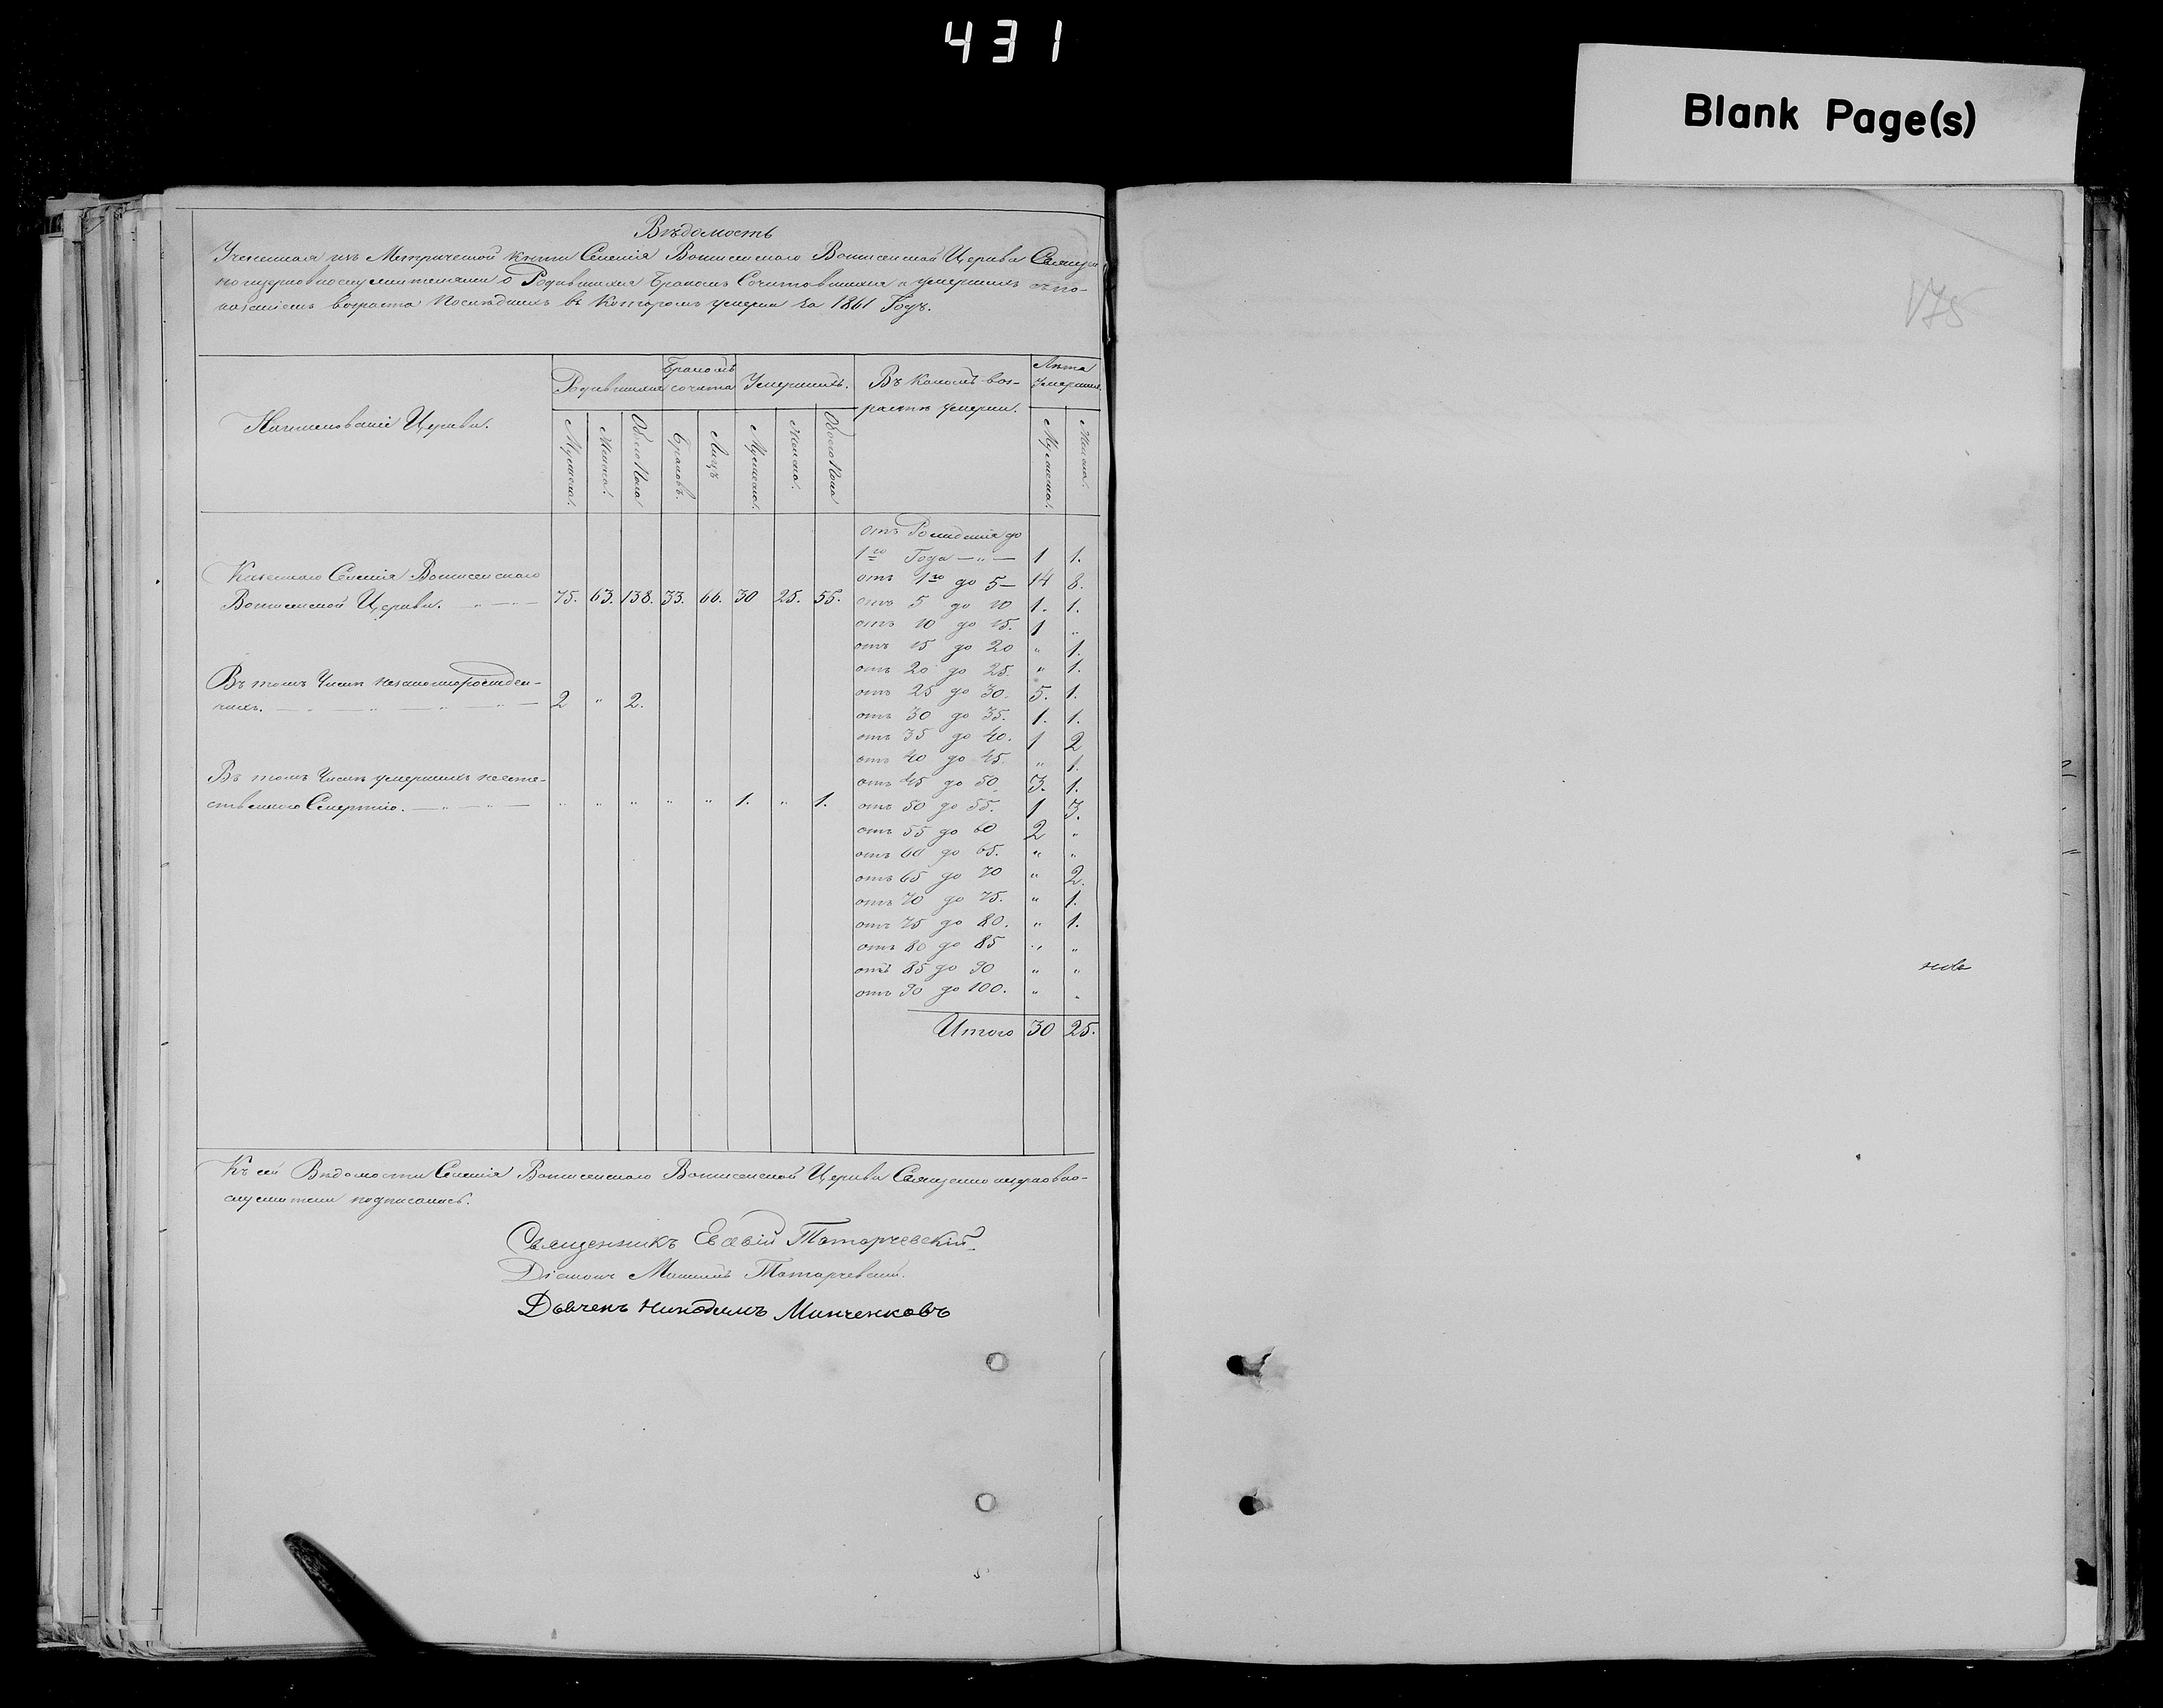 431
Blank Page(s)
175
Вѣдомость
Учиненная изъ Метрической книги Селенія Вониссенскаго Вониссенской Церкви Священно
церковнослужителями о Родившихся Бракомъ Сочитовшихся и умершихъ съ по-
казаніемъ возраста Последнихъ въ Которомъ умерли за 1861 Годъ.
Наименованіе Церкви. Родившихся Бракомъ сочета Умершихъ. Въ Какомъ воз-растѣ умерли. Лѣта умершихъ.
Мужеска. Женска. Обоего Пола Браковъ. Лицъ Мужеска. Женска. Обоего Пола Мужеска. Женска.
отъ Рожденія до
1го Года — „ — 1 1.
Казеннаго Селенія
отъ 1го до 5 — 14 8.
Церкви. — „ — 75. 63. 138. 33. 66. 30 25. 55.
отъ 5 до 10 1. 1.
отъ 10 до 15. 1 „
отъ 15 до 20 „ 1.
отъ 20 до 25. „ 1.
Въ томъ Числѣ незаконнорожден-
ныхъ. — „ — „ — „ — „ — 2 „ 2.
отъ 25 до 30. 5. 1.
отъ 30 до 35. 1. 1.
отъ 35 до 40. 1 2
отъ 40 до 45. „ 1.
Въ томъ Числѣ умершихъ неесте-
отъ 45 до 50 3. 1.
ственною Смертію. — „ — „ — „ „ „ „ „ 1. „ 1.
отъ 50 до 55. 1 3.
отъ 55 до 60 2 „
отъ 60 до 65. „ „
отъ 65 до 70 „ 2.
отъ 70 до 75. „ 1.
отъ 75 до 80. „ 1.
отъ 80 до 85 „ „
отъ 85 до 90 „ „
отъ 90 до 100. „ „
Итого 30 25.
Къ сей Вѣдомости Селенія Вониссенскаго Вониссенской Церкви Священно церковно-
служители подписались.
Священникъ Евсевій Татарчевскій
Діаконъ Татарчевскій.
Дьячекъ Никодимъ Минченковъ